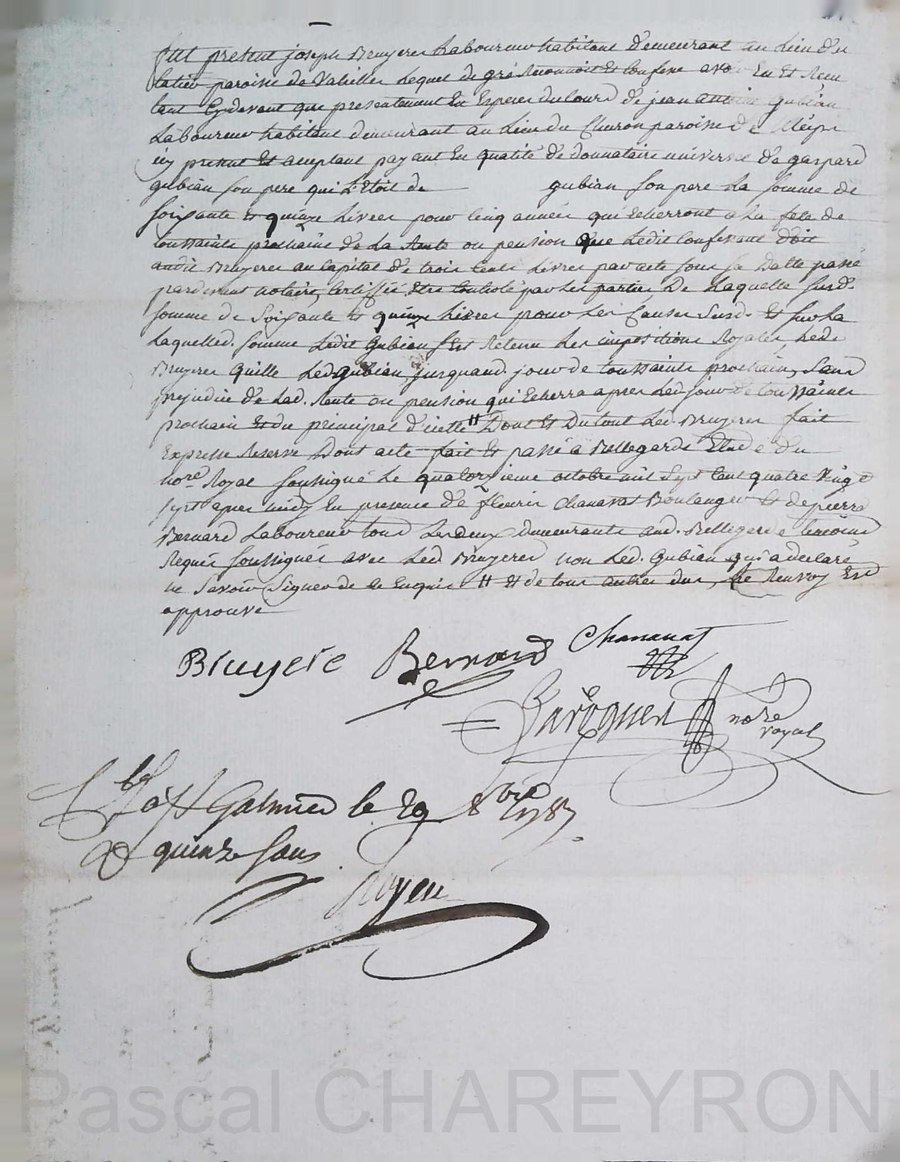 fut present joseph Bruyere Laboureur habitant demeurant au Lieu du
paroisse de Lequel de gré Reconnoit Et Confesse avoir Eu Et Receu
tant Cydevant que presentement En Especes du Cours de jean antoine gubian
Laboureur habitant demeurant au Lieu du paroisse de
icy present Et acceptant payant En qualité de donnataire universel de gaspard
gubian son pere qui L'Etoit de gubian son pere La somme de
soixante Et quinze Livres pour Cinq années qui Echerront a La fete de
toussaints prochaine de La Rente ou pension que Ledit Confessant doit
audit Bruyere au Capital de trois Cents Livres par acte sous sa datte passé
pardevant notaire, Certiffié Etre Controlé par Les parties De Laquelle susd.
somme de Soixante Et quinze Livres pour Les Causes Susd. Et sur La
Laquelle d. somme Ledit Gubian s'Est Retenu Les impositions Royales Led.
Bruyere quitte Led. gubian jusquaud. jour de toussaints prochain, Sans
prejudice de Lad. Rente ou pension qui Echerra apres Led. jour de toussaints
prochain Et du principal d'icelle # Dont Et Du tout Led. Bruyere fait
Expresse Reserve Dont acte fait Et passé a Bellegarde Etude du
no.re Royal soussigné Le quatorzieme octobre mil Sept Cent quatre vingt
sept apres midy En presence de fleury Chanavat Boulanger Et de pierre
Bernard Laboureur tous Les deux demeurants aud. Bellegarde temoins
Requis soussignés avec Led. Bruyere non Led. Gubian qui a declaré
ne Savoir Signer de ce Enquis # Et de tous autres dus, Le Renvoy Est
approuvé
Bruyere Bernard Chanavat
no.re royal
a St Galmier le 29 8bre 1787
quinze sous
Pascal CHAREYRON